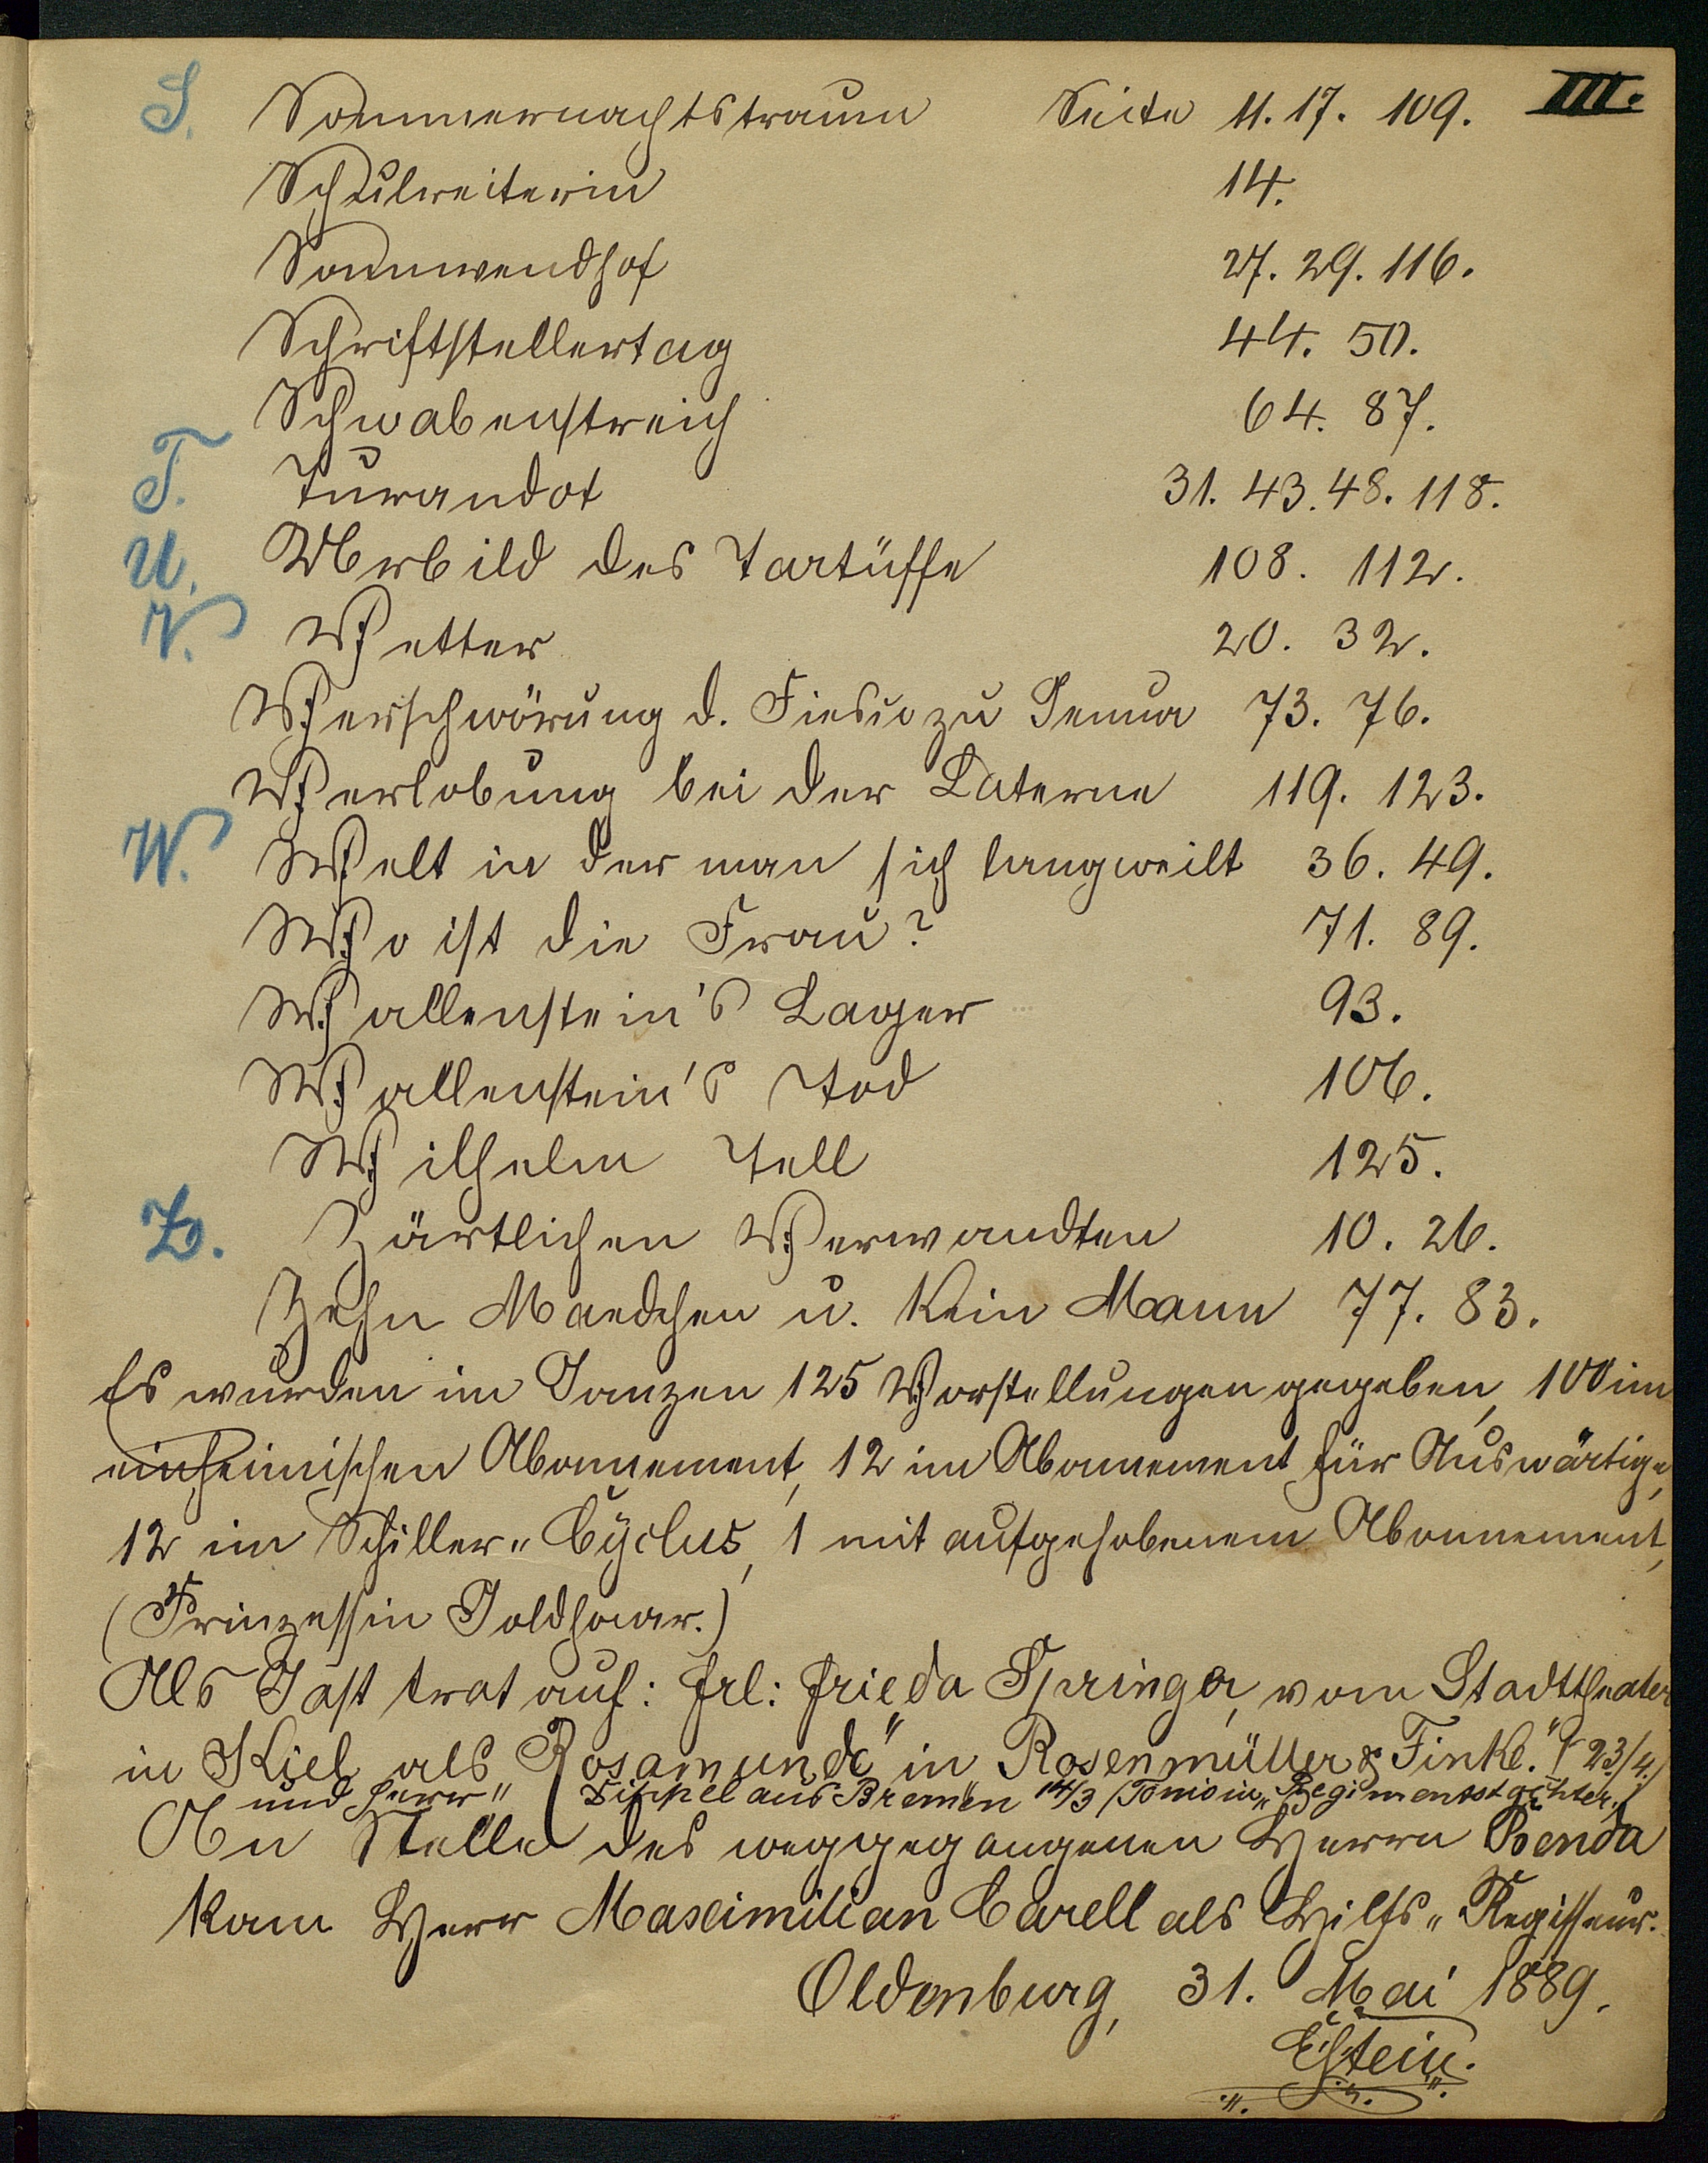 III.
S. Sommernachtstraum Seite 11. 17. 109.
Schulreiterin 14.
Sonnwendhof 27. 29. 116.
Schriftstellertag 44. 50.
Schwabenstreich 64. 87.
T. Turandot 31. 43. 48. 118.
U. Urbild des Tartüffe 108. 112.
V. Vetter 20. 32.
Verschwörung d. Fiesco zu Genua 73. 76.
Verlobung bei der Laterne 119. 123.
W. Welt in der man sich langweilt 36. 49.
Wo ist die Frau? 71. 89.
Wallenstein's Lager 93.
Wallenstein's Tod 106.
Wilhelm Tell 125.
Z. Zärtlichen Verwandten 10. 26.
Zehn Maedchen u. kein Mann 77. 83.
Es wurden im Ganzen 125 Vorstellungen gegeben, 100 im
einheimischen Abonnement, 12 im Abonnement für Auswärtige,
12 im Schiller-Cyclus, 1 mit aufgehobenem Abonnement,
(Prinzessin Goldhaar.)
Als Gast trat auf: Frl: Frieda Springer, vom Stadttheater
in Kiel als "Rosamunde" in Rosenmüller & Finke." (23/4.)
und Herr Sippel aus Bremen 14/3 (Tonio in "Regimentstochter.)
An Stelle des weggegangenen Herrn Benda
kam Herr Maximilian Carell als Hilfs-Regisseur.
Oldenburg, 31. Mai 1889.